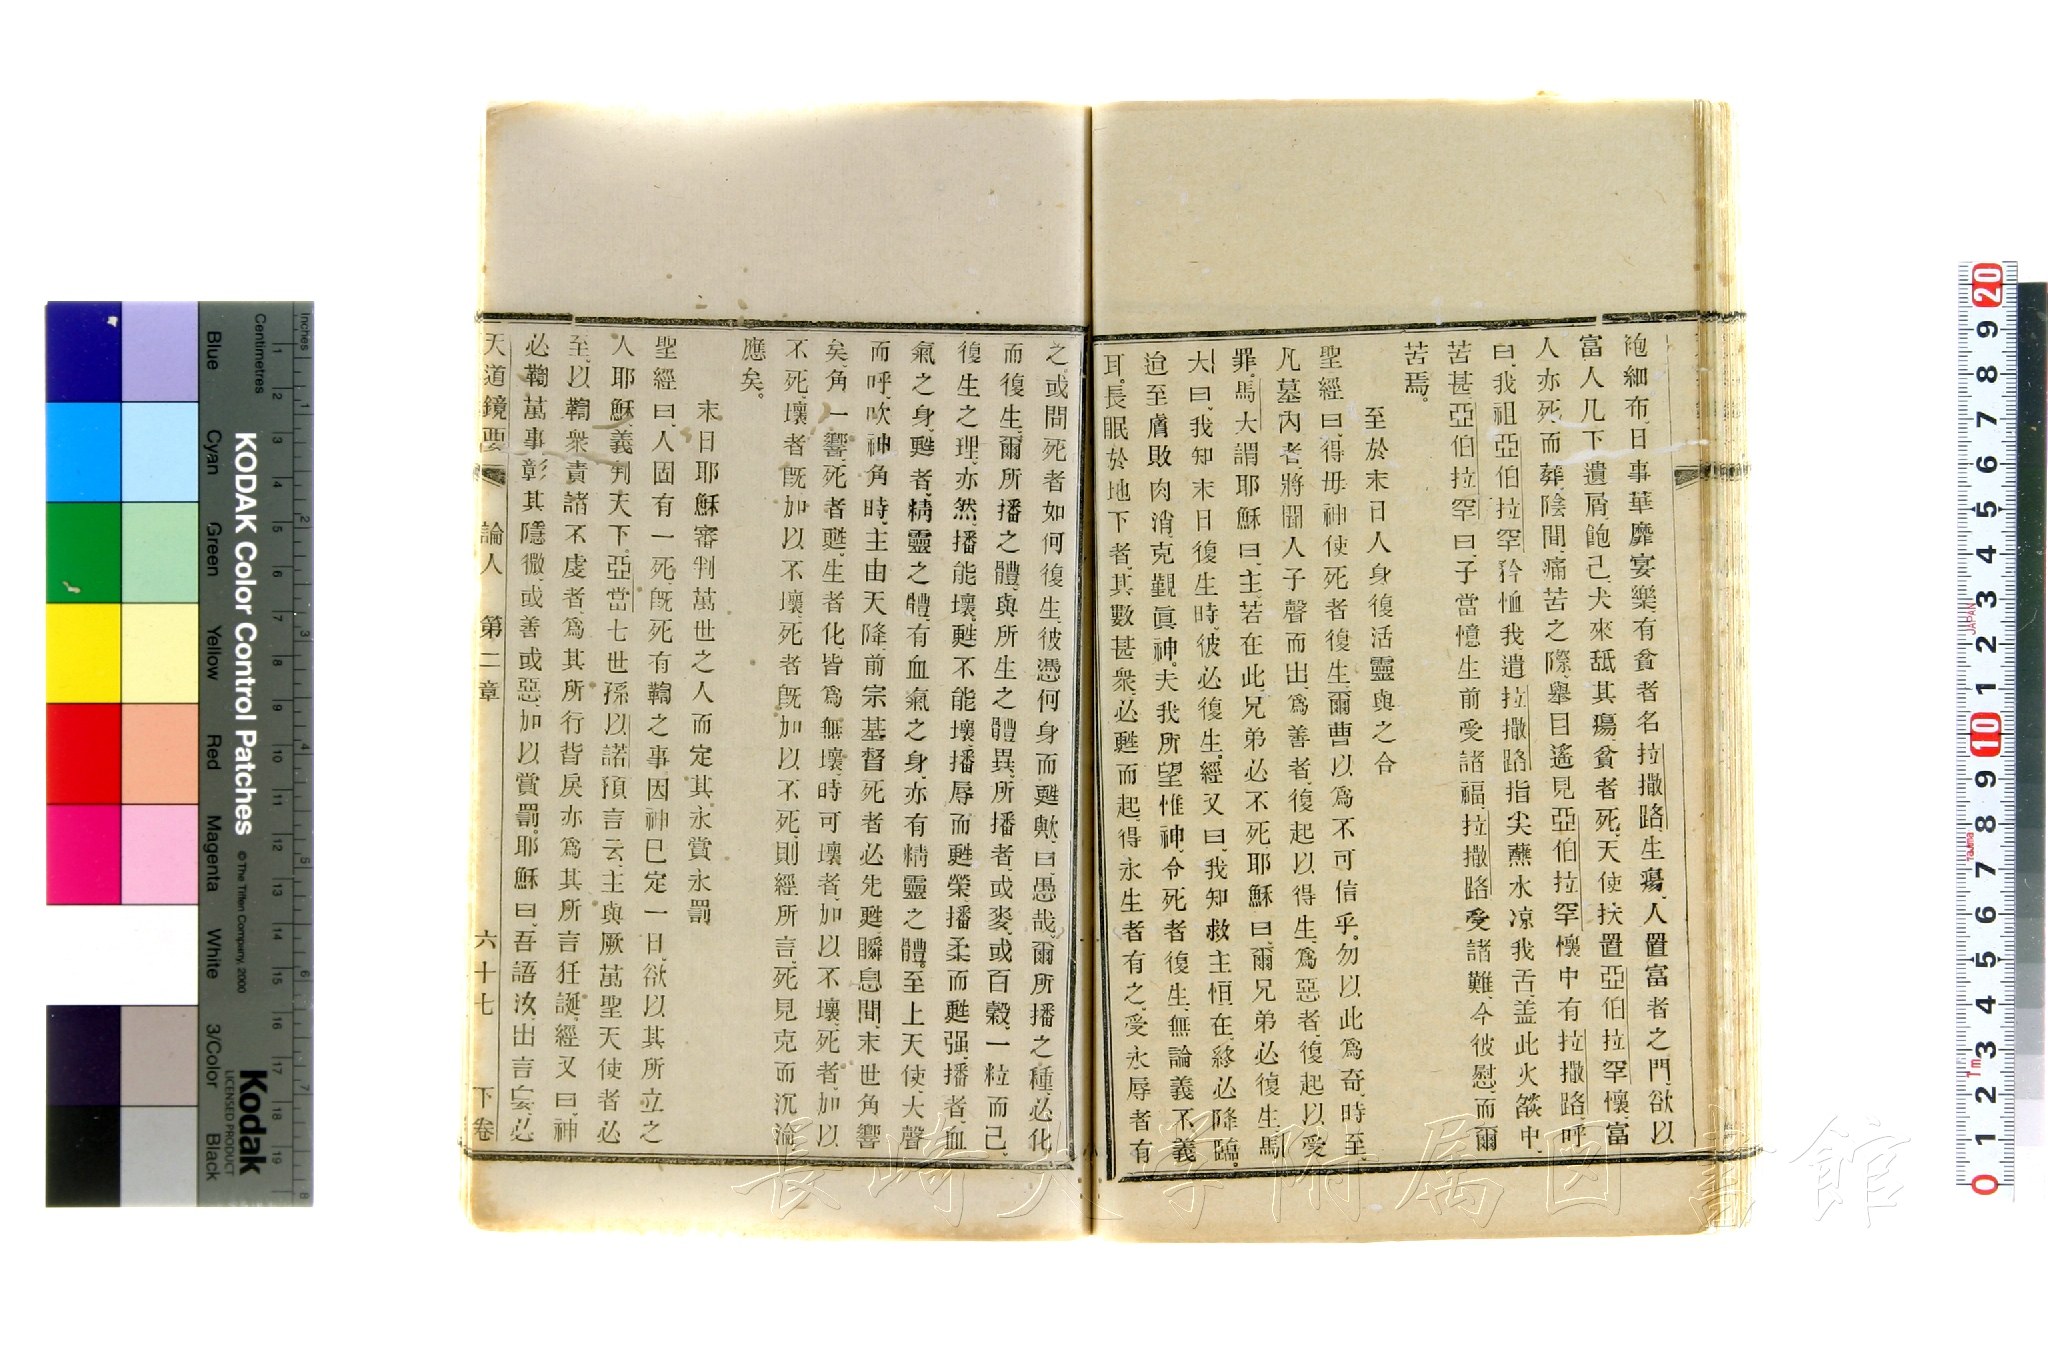 袍細布、日事華靡宴樂、有貧者名拉撒路、生瘍、人置富者之門、欲以
富人几下遺屑飽己、犬來舐其瘍、貧者死、天使扶置亞伯拉罕懷、富
人亦死、而葬、陰間痛苦之際、舉目遙見亞伯拉罕懷中有拉撒路、呼
曰、我祖亞伯拉罕、矜恤我、遣拉撒路指尖蘸水、凉我舌、盖此火燄中、
苦甚、亞伯拉罕曰、子當憶生前受諸福、拉撒路受諸難、今彼慰而爾
苦焉。
至於末日人身復活靈與之合
聖經曰、得毋神使死者復生、爾曹以爲不可信乎。勿以此爲奇、時至、
凡墓內者、將聞人子聲而出、爲善者、復起以得生、爲惡者、復起以受
罪。馬大謂耶穌曰、主、若在此、兄弟必不死、耶穌曰、爾兄弟必復生、馬
大曰、我知末日復生時、彼必復生。經又曰、我知救主恒在、終必降臨。
迨至膚敗肉消、克覲眞神。夫我所望惟神、令死者復生、無論義不義
耳。長眠於地下者、其數甚衆、必甦而起、得永生者有之、受永辱者有
之、或問死者如何復生、彼憑何身而甦歟、曰、愚哉、爾所播之種、必化
而復生、爾所播之體、與所生之體異、所播者、或麥、或百穀、一粒而已、
復生之理、亦然、播能壞、甦不能壞、播辱而甦榮、播柔而甦强、播者、血
氣之身、甦者、精靈之體、有血氣之身、亦有精靈之體。至上天使大聲
而呼、吹神角時、主由天降、前宗基督死者必先甦、瞬息間、末世角響
矣、角一響、死者甦、生者化、皆爲無壞、時可壞者、加以不壞、死者、加以
不死、壞者旣加以不壞、死者旣加以不死、則經所言、死見克而沉淪
應矣。
末日耶穌審判萬世之人而定其永賞永罰
聖經曰、人固有一死、旣死有鞫之事、因神已定一日、欲以其所立之
人耶穌、義判天下、亞當七世孫以諾預言云、主與厥萬聖天使者必
至、以鞫衆、責諸不虔者、爲其所行皆戾、亦爲其所言狂誕、經又曰、神
必鞫萬事、彰其隱微、或善或惡、加以賞罰。耶穌曰、吾語汝、出言妄、必
天道鏡要 論人 第二章 六十七 下卷
長崎大学附属図書館
KODAK Color Control Patches
© The Tiffen Company, 2000
Kodak
LICENSED PRODUCT
Inches
Centimetres
Blue
Cyan
Green
Yellow
Red
Magenta
White
3/Color
Black